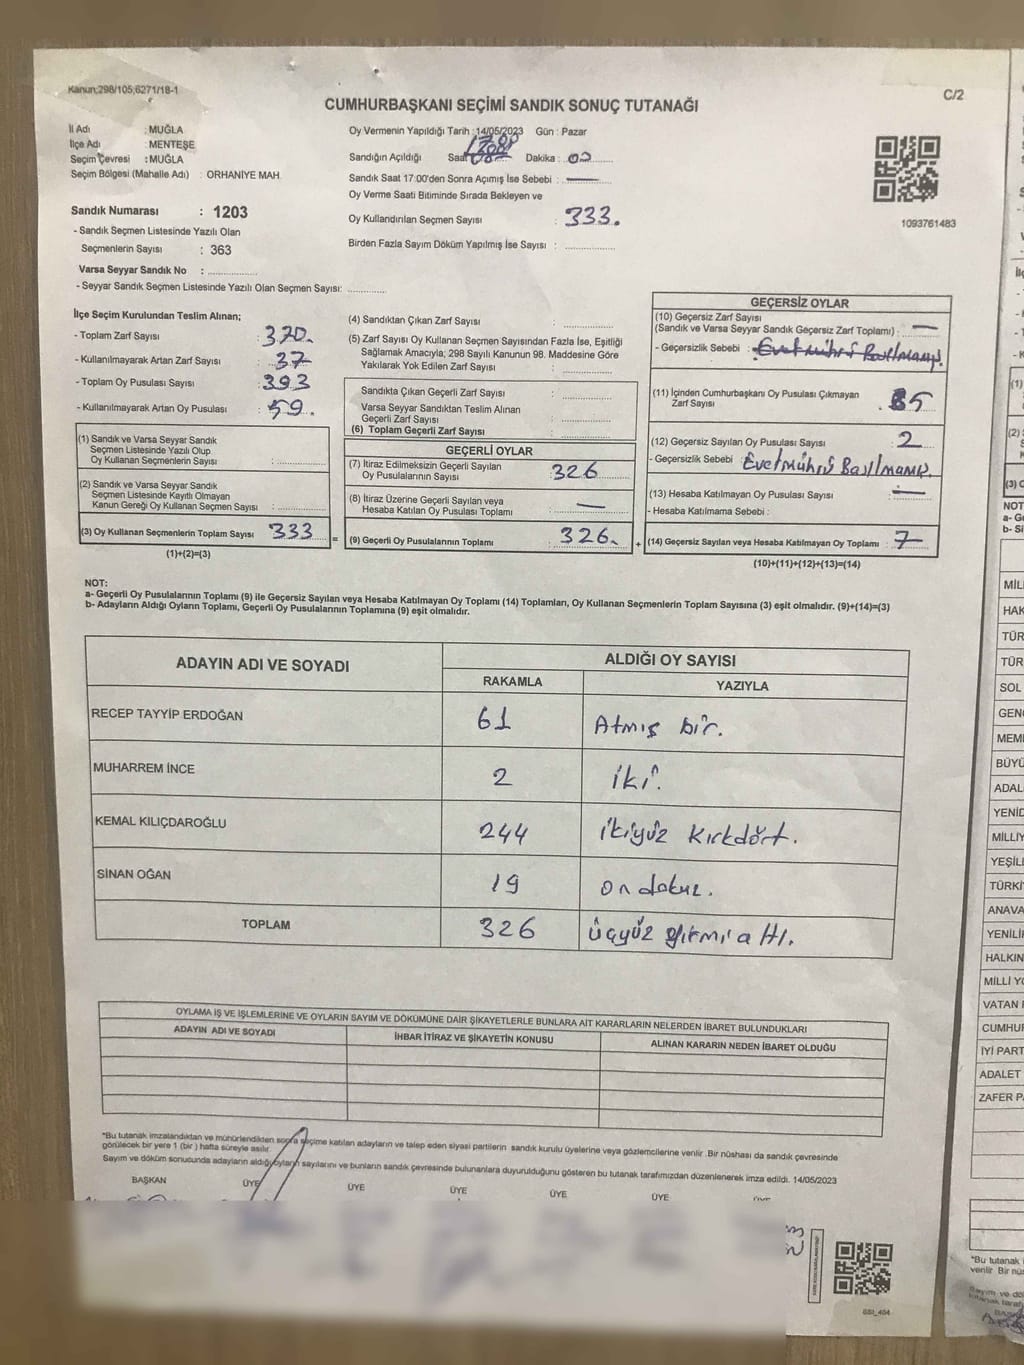 Kanun;298/105,6271/18-1
C/2
CUMHURBAŞKANI SEÇİMİ SANDIK SONUÇ TUTANAĞI
İl Adı : MUĞLA
İlçe Adı : MENTEŞE
Seçim Çevresi : MUĞLA
Seçim Bölgesi (Mahalle Adı) : ORHANİYE MAH.
Sandık Numarası : 1203
- Sandık Seçmen Listesinde Yazılı Olan
Seçmenlerin Sayısı : 363
Varsa Seyyar Sandık No : ...............
- Seyyar Sandık Seçmen Listesinde Yazılı Olan Seçmen Sayısı: ............
Oy Vermenin Yapıldığı Tarih : 14/05/2023 Gün : Pazar
Sandığın Açıldığı Saat Dakika : 00
Sandık Saat 17:00'den Sonra Açımış İse Sebebi : —
Oy Verme Saati Bitiminde Sırada Bekleyen ve
Oy Kullandırılan Seçmen Sayısı : 333.
Birden Fazla Sayım Döküm Yapılmış İse Sayısı : ...............
1093761483
İlçe Seçim Kurulundan Teslim Alınan;
- Toplam Zarf Sayısı : 370.
- Kullanılmayarak Artan Zarf Sayısı : 37
- Toplam Oy Pusulası Sayısı : 393
- Kullanılmayarak Artan Oy Pusulası : 59.
(1) Sandık ve Varsa Seyyar Sandık
Seçmen Listesinde Yazılı Olup
Oy Kullanan Seçmenlerin Sayısı : ...............
(2) Sandık ve Varsa Seyyar Sandık
Seçmen Listesinde Kayıtlı Olmayan
Kanun Gereği Oy Kullanan Seçmen Sayısı : ...............
(3) Oy Kullanan Seçmenlerin Toplam Sayısı : 333 =
(1)+(2)=(3)
(4) Sandıktan Çıkan Zarf Sayısı : ...............
(5) Zarf Sayısı Oy Kullanan Seçmen Sayısından Fazla İse, Eşitliği
Sağlamak Amacıyla; 298 Sayılı Kanunun 98. Maddesine Göre
Yakılarak Yok Edilen Zarf Sayısı : ...............
Sandıkta Çıkan Geçerli Zarf Sayısı : ...............
Varsa Seyyar Sandıktan Teslim Alınan
Geçerli Zarf Sayısı : ...............
(6) Toplam Geçerli Zarf Sayısı : ...............
GEÇERLİ OYLAR
(7) İtiraz Edilmeksizin Geçerli Sayılan
Oy Pusulalarının Sayısı : 326
(8) İtiraz Üzerine Geçerli Sayılan veya
Hesaba Katılan Oy Pusulası Toplamı : —
(9) Geçerli Oy Pusulalarının Toplamı : 326. +
GEÇERSİZ OYLAR
(10) Geçersiz Zarf Sayısı
(Sandık ve Varsa Seyyar Sandık Geçersiz Zarf Toplamı) : —
- Geçersizlik Sebebi : Evet Mührü Basılmamış.
(11) İçinden Cumhurbaşkanı Oy Pusulası Çıkmayan
Zarf Sayısı : 5
(12) Geçersiz Sayılan Oy Pusulası Sayısı : 2
- Geçersizlik Sebebi : Evet Mührü Basılmamış.
(13) Hesaba Katılmayan Oy Pusulası Sayısı : —
- Hesaba Katılmama Sebebi :
(14) Geçersiz Sayılan veya Hesaba Katılmayan Oy Toplamı : 7
(10)+(11)+(12)+(13)=(14)
NOT:
a- Geçerli Oy Pusulalarının Toplamı (9) ile Geçersiz Sayılan veya Hesaba Katılmayan Oy Toplamı (14) Toplamları, Oy Kullanan Seçmenlerin Toplam Sayısına (3) eşit olmalıdır. (9)+(14)=(3)
b- Adayların Aldığı Oyların Toplamı, Geçerli Oy Pusulalarının Toplamına (9) eşit olmalıdır.
ADAYIN ADI VE SOYADI
ALDIĞI OY SAYISI
RAKAMLA YAZIYLA
RECEP TAYYİP ERDOĞAN 61 Atmış bir.
MUHARREM İNCE 2 iki.
KEMAL KILIÇDAROĞLU 244 ikiyüz Kırkdört.
SİNAN OĞAN 19 on dokuz.
TOPLAM 326 üçyüz yirmi altı.
OYLAMA İŞ VE İŞLEMLERİNE VE OYLARIN SAYIM VE DÖKÜMÜNE DAİR ŞİKAYETLERLE BUNLARA AİT KARARLARIN NELERDEN İBARET BULUNDUKLARI
ADAYIN ADI VE SOYADI İHBAR İTİRAZ VE ŞİKAYETİN KONUSU ALINAN KARARIN NEDEN İBARET OLDUĞU
*Bu tutanak imzalandıktan ve mühürlendikten sonra seçime katılan adayların ve talep eden siyasi partilerin sandık kurulu üyelerine veya gözlemcilerine verilir .Bir nüshası da sandık çevresinde
görülecek bir yere 1 (bir ) hafta süreyle asılır.
Sayım ve döküm sonucunda adayların aldığı oyların sayılarını ve bunların sandık çevresinde bulunanlara duyurulduğunu gösteren bu tutanak tarafımızdan düzenlenerek imza edildi. 14/05/2023
BAŞKAN ÜYE ÜYE ÜYE ÜYE ÜYE ÜYE
(1)
(2)
(3)
NOT
MİL
HAK
TÜR
TÜR
SOL
GEN
MEM
BÜYÜ
ADAL
YENİD
MİLLİY
YEŞİL
TÜRKİ
ANAVA
YENİLİ
HALKIN
MİLLİ Y
VATAN
CUMHU
İYİ PART
ADALET
ZAFER P
*Bu tutanak
verilir Bir nüs